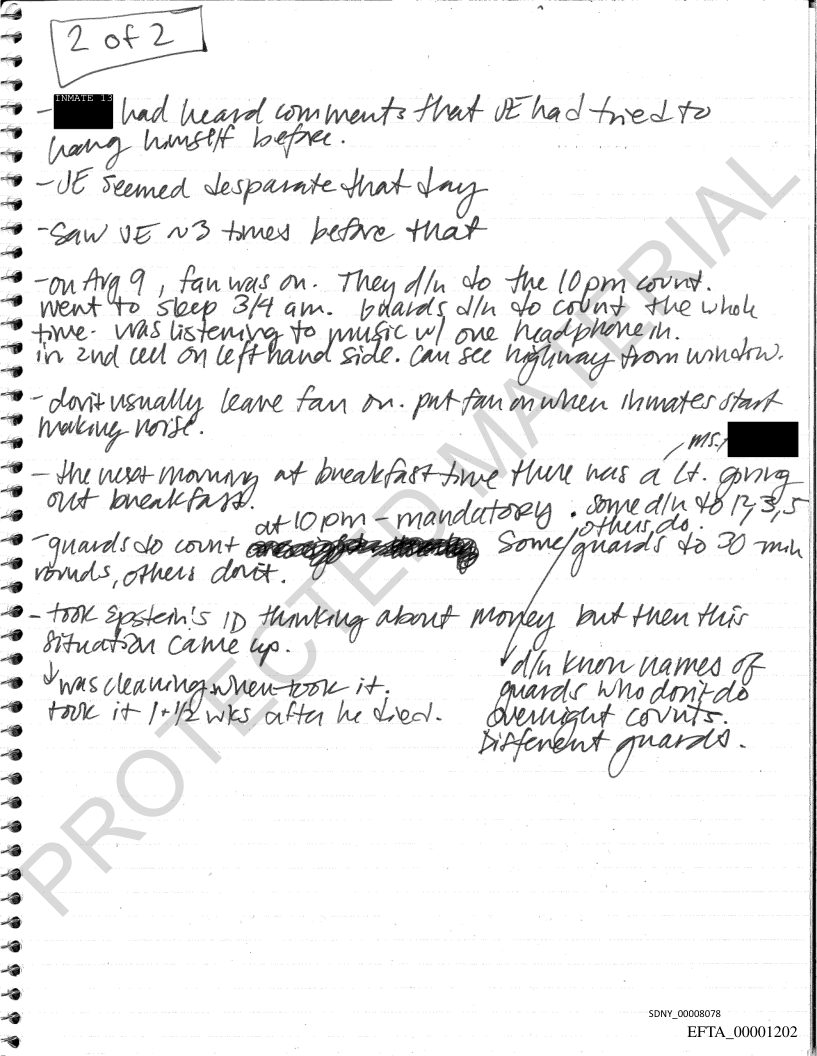 2 of 2
- INMATE 13 had heard comments that JE had tried to
hang himself before.
- JE seemed desparate that day
- Saw JE ~3 times before that
- on Aug 9, fan was on. They d/n do the 10 pm count.
went to sleep 3/4 am. guards d/n do count the whole
time. was listening to music w/ one headphone in.
in 2nd cell on left hand side. Can see highway from window.
- don't usually leave fan on. put fan on when inmates start
making noise.
ms.
- the next morning at breakfast time there was a Lt. giving
out breakfast.
at 10 pm - mandatory. some d/n do 12, 3, 5
others do.
- guards do count Some guards do 30 min
rounds, others don't.
- took Epstein's ID thinking about money but then this
situation came up.
was cleaning when took it.
took it 1 + 1/2 wks after he died.
d/n know names of
guards who don't do
overnight counts.
Different guards.
PROTECTED MATERIAL
SDNY_00008078
EFTA_00001202